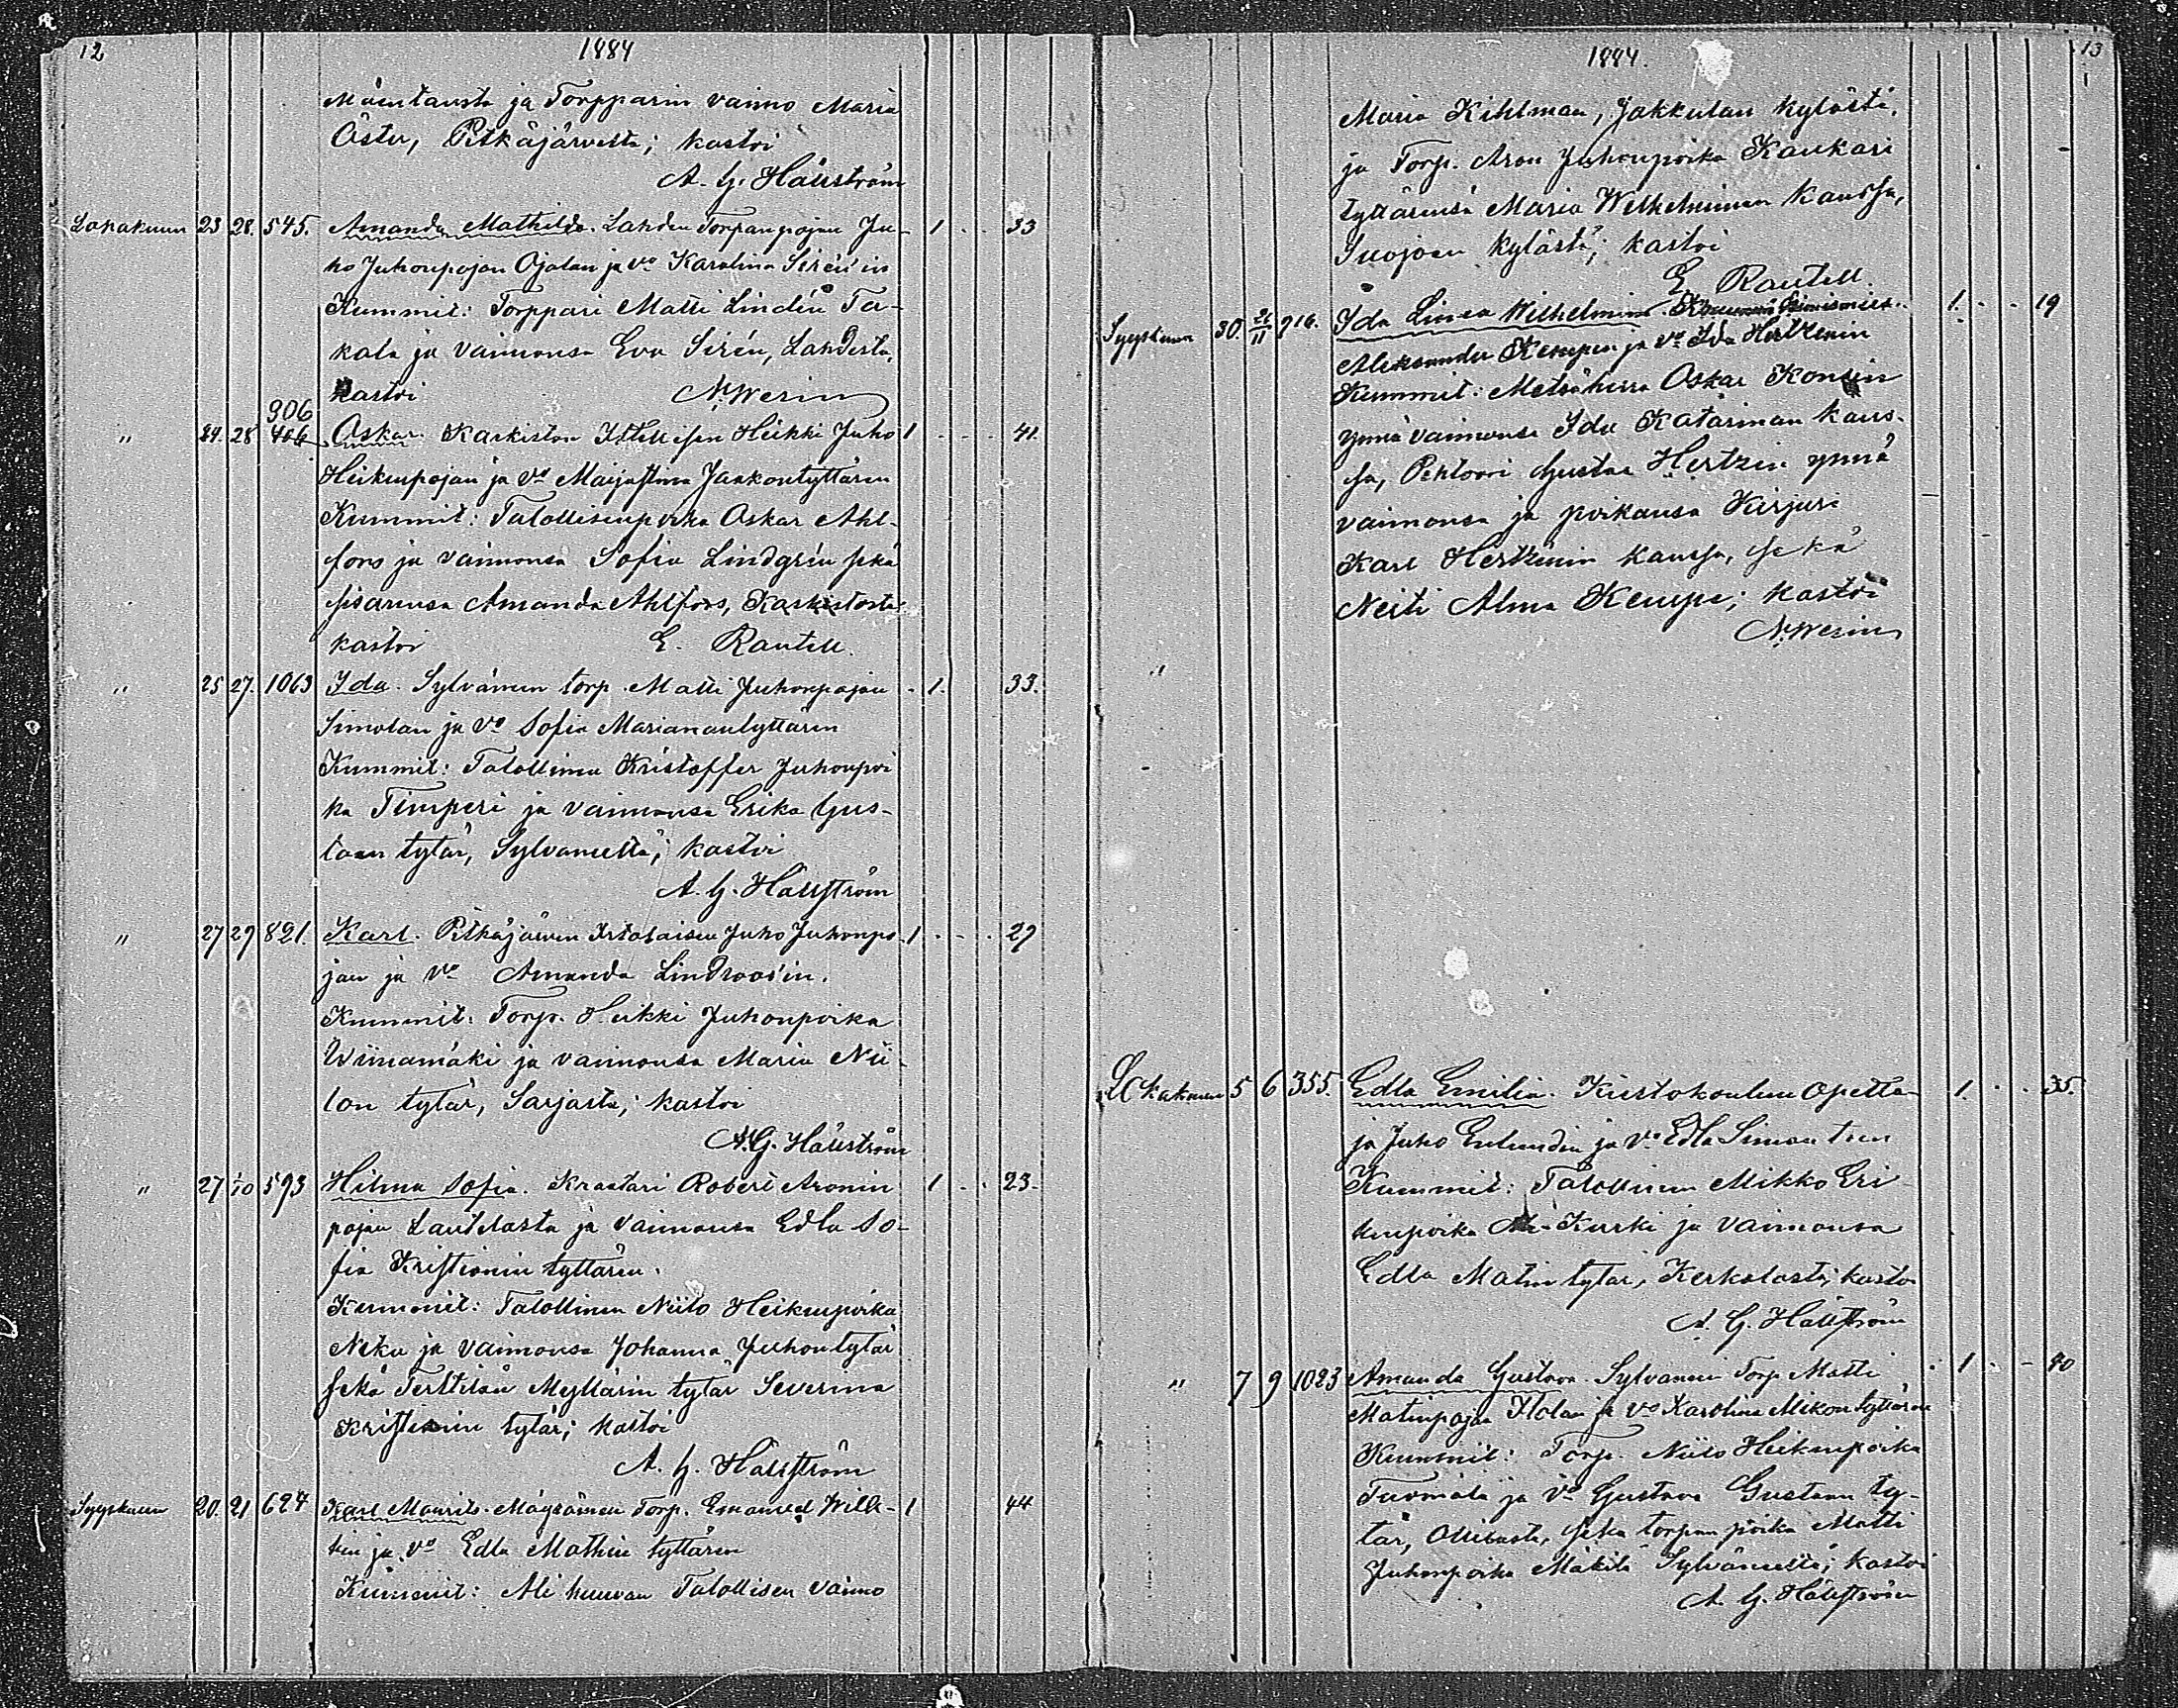 12 1884
Mäentausta ja Torpparin vaimo Maria
Öster, Pitkäjärveltä; kastoi
A. G. Hällström
Lokakuun 23 28. 545. Amanda Mathilda. Lahden Torpanpojan Ju- 1 33
ho Juhonpojan Ojalan ja vo Karolina Sirén'in
Kummit: Torppari Matti Lindén Ta-
kala ja vaimonsa Eva Sirén, Lahdesta,
kastoi N. Wesin
306
" 24. 28 406 Oskar. Karkiston Itsellisen Heikki Juho 1 41.
Heikinpojan ja vo Maijastina Jaakontyttären
Kummit: Talollisenpoika Oskar Ahl-
fors ja vaimonsa Sofia Lindgrén sekä
sisarensa Amanda Ahlfors, Karkistosta
kastoi E. Rautell.
" 25 27. 1063 Ida. Sylvänen torp. Matti Juhonpojan 1. 33.
Simolan ja vo Sofia Marianantyttären
Kummit: Talollinen Kristoffer Juhonpoi
ka Timperi ja vaimonsa Erika Gus-
taan tytär, Sylvaneeltä; kastoi
A. G. Hällström
" 27 29 821. Karl. Pitkäjärven Juho Juhonpo 1 29
jan ja vo Amanda Lindroos'in.
Kummit: Torp. Heikki Juhonpoika
Wiinamäki ja vaimonsa Maria Nii-
lon tytär, Sarjasta; kastoi
A. G. Hällström
" 27 1/10 593 Hilma Sofia. Kraatari Robert Aronin 1 23.
pojan Lautelasta ja vaimonsa Edla So-
fia Kristianin tyttären.
Kummit: Talollinen Niilo Heikinpoika
Neku ja vaimonsa Johanna Juhontytär
sekä Terttilän Myllärin tytär Severina
Kristianin tytär; kastoi
A. G. Hällström
Syyskuun 20. 21 627 Karl Maurits. Torp. Emanuel Will- 1 44
ja vo Edla Mathin tyttären
Kummit: Talollisen vaimo
1884. 13
Maria Kihlman, Jakkulan kylästä,
ja Torp. Aron Juhonpoika Kaukari
tyttärensä Maria Wilhelmiinan kanssa,
Suojoen kylästä; kastoi
E. Rautell.
Syyskuun 30. 21/11 216. Ida Linea Wilhelmina. 1. 19
Aleksander Kempen ja vo Ida Hertzenin
Kummit: Metsäherra Oskar Konsin
ynnä vaimonsa Ida Katarinan kans-
sa, Pehtoori Gustav Hertzin ynnä
vaimonsa ja poikansa Kirjuri
Karl Hertzenin kanssa, sekä
Neiti Alma Kempe; kastoi
N. Wesin
"
Lokakuun 5 6 355. Edla Emilia. Kiertokoulun opetta- 1. 35.
ja Juho Enlundin ja vo Edla Simontein
Kummit: Talollinen Mikko Eri-
kinpoika Kurki ja vaimonsa
Edla Matin tytär, Kerkolasta; kastoi
A. G. Hällström
" 7 9 1023 Amanda Gustava. Sylvänen Torp. Matti 1 40
Matinpojan Ylolan ja vo Karolina Mikon tyttären
Kummit: Torp. Niilo Heikinpoika
Tuomola ja vo Gustava Gustaan ty-
tär, Ollilasta, sekä torpan poika Matti
Juhonpoika Mäkilä Sylväneeltä; kastoi
A. G. Hällström